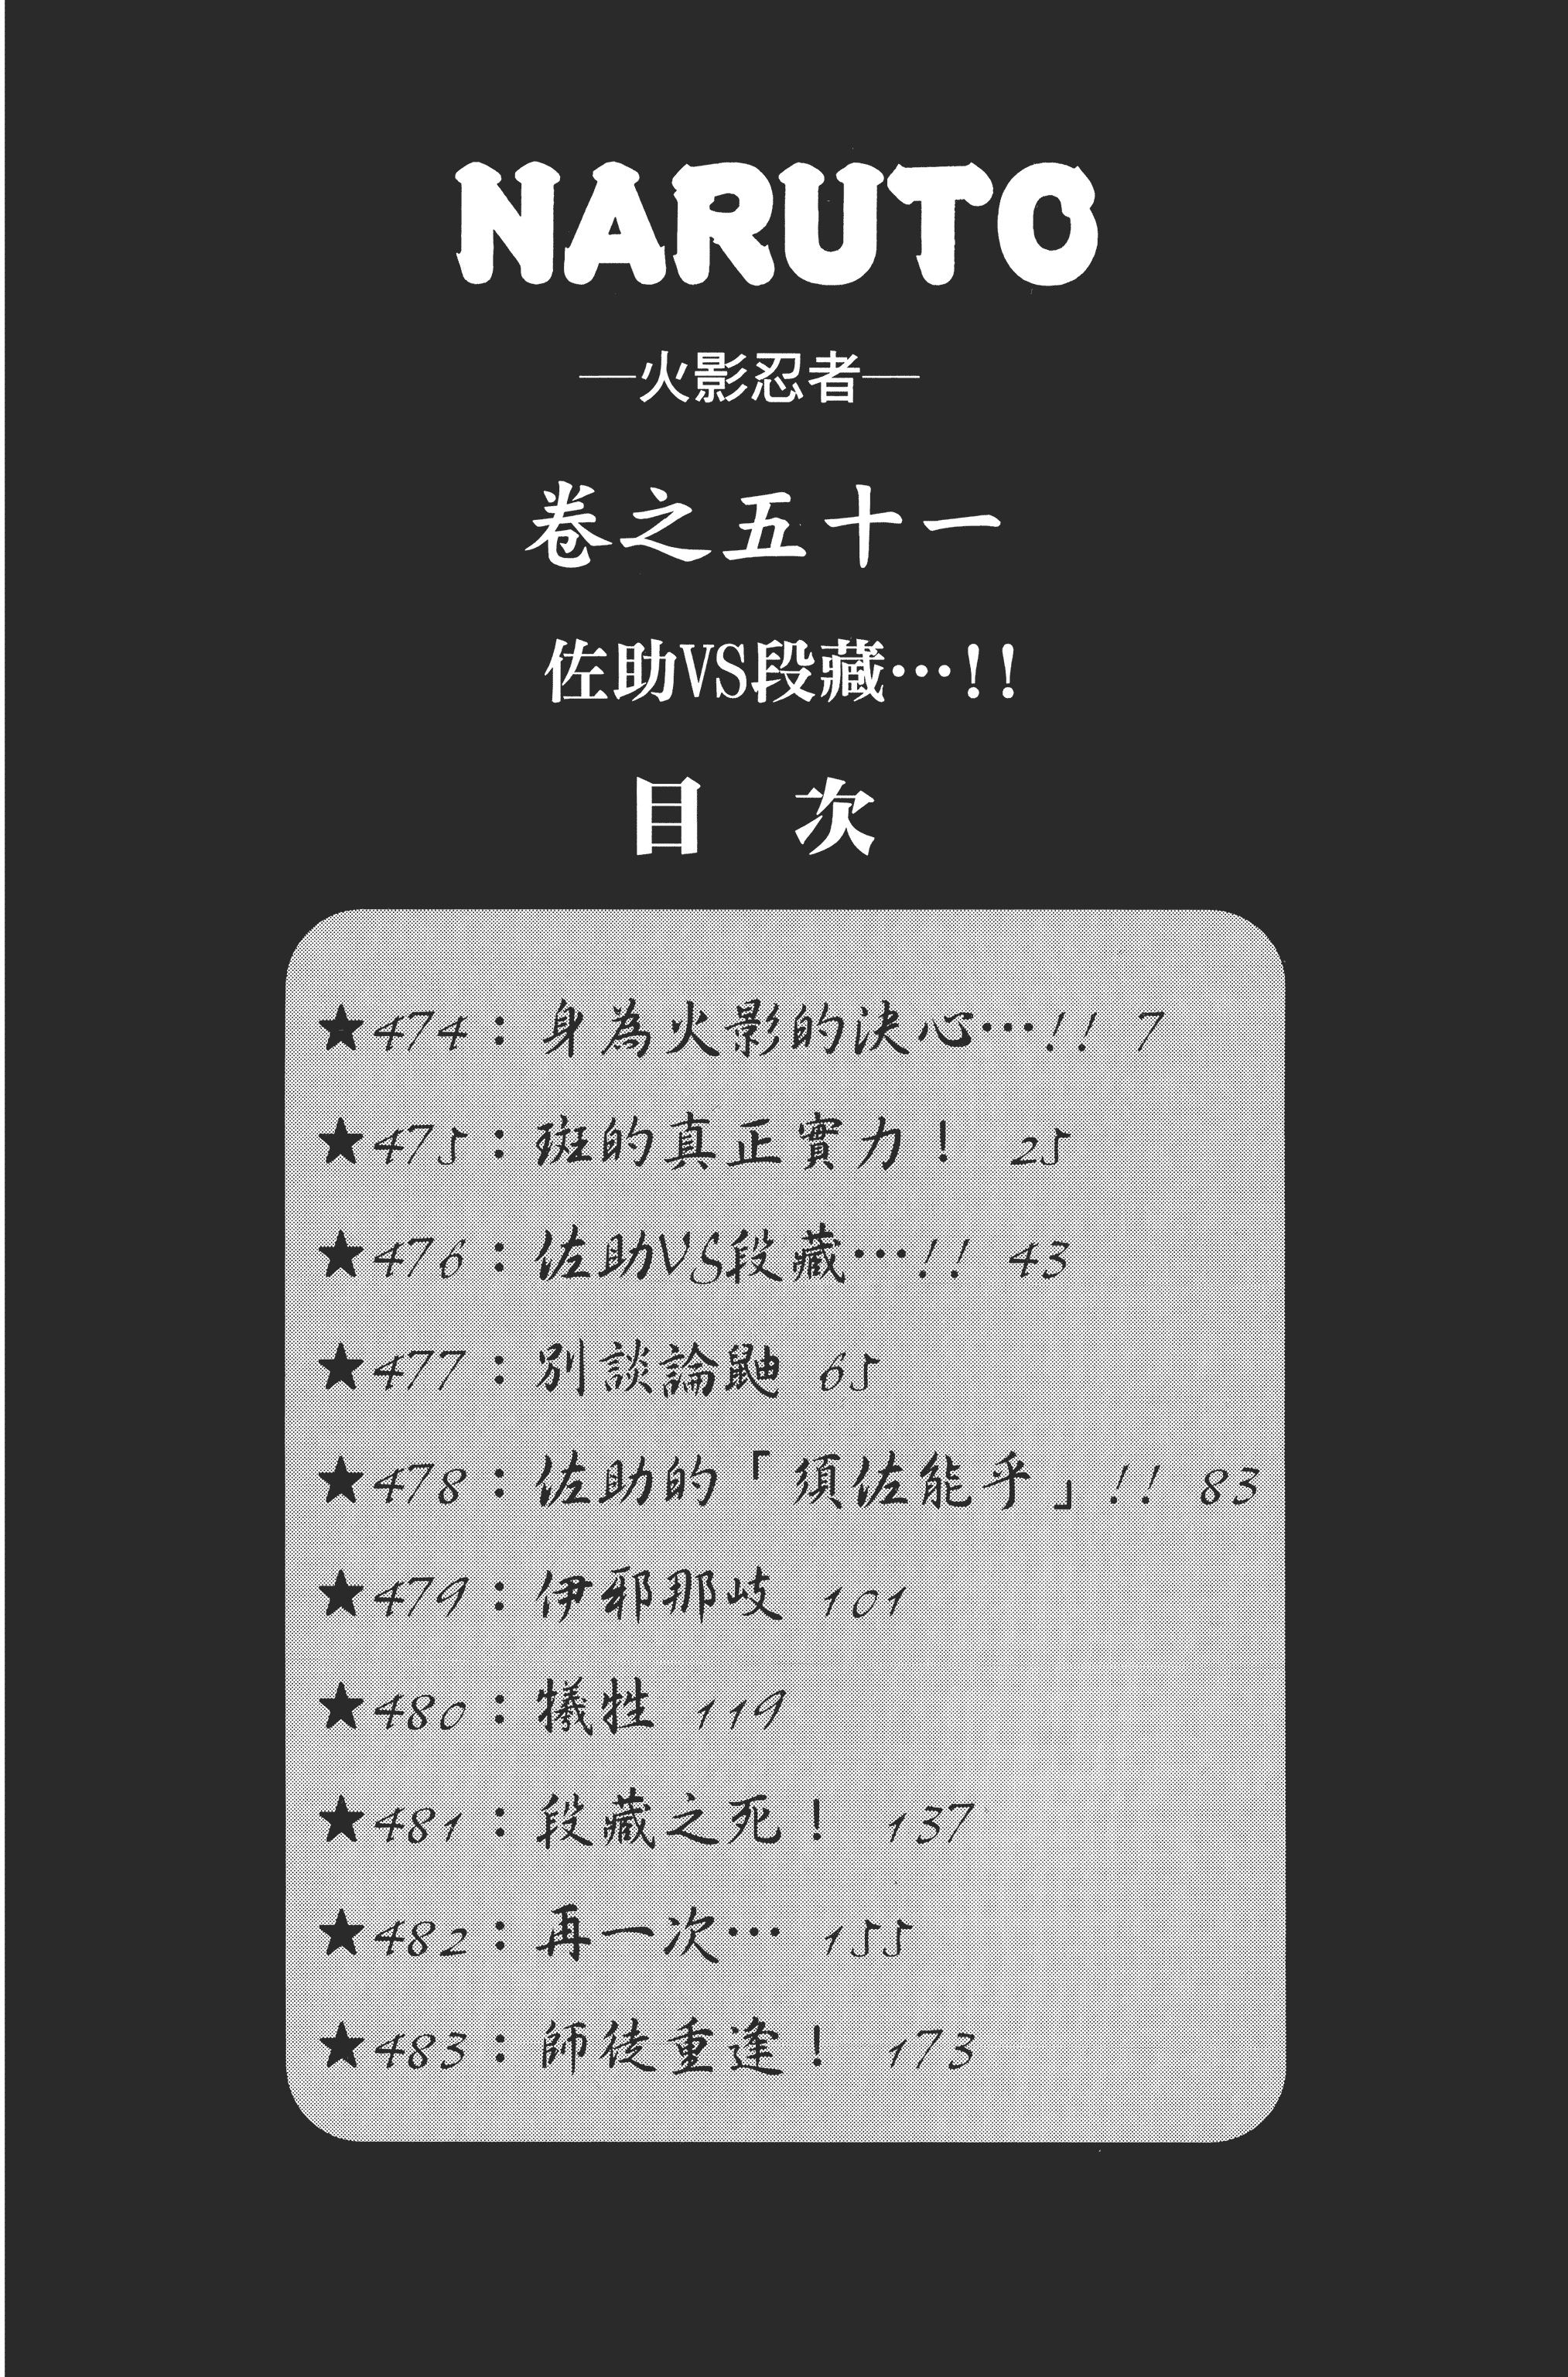 NARUTO
—火影忍者—
卷之五十一
佐助VS段藏…!!
目 次
★474：身為火影的決心…!! 7
★475：斑的真正實力！ 25
★476：佐助VS段藏…!! 43
★477：別談論鼬 65
★478：佐助的「須佐能乎」!! 83
★479：伊邪那岐 101
★480：犧牲 119
★481：段藏之死！ 137
★482：再一次… 155
★483：師徒重逢！ 173